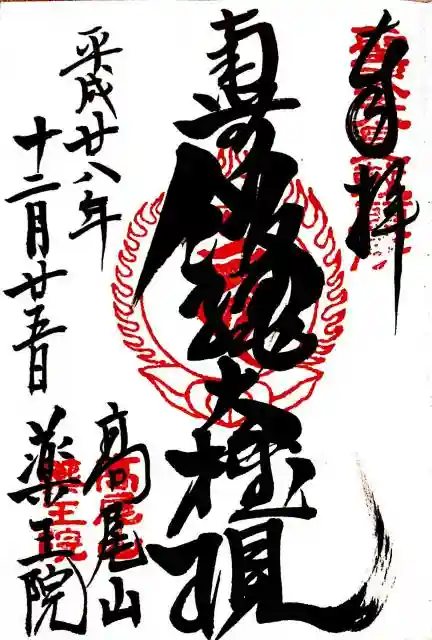 奉拝
飯縄大権現
平成廿八年
十二月廿五日
高尾山
薬王院
高尾山
薬王院